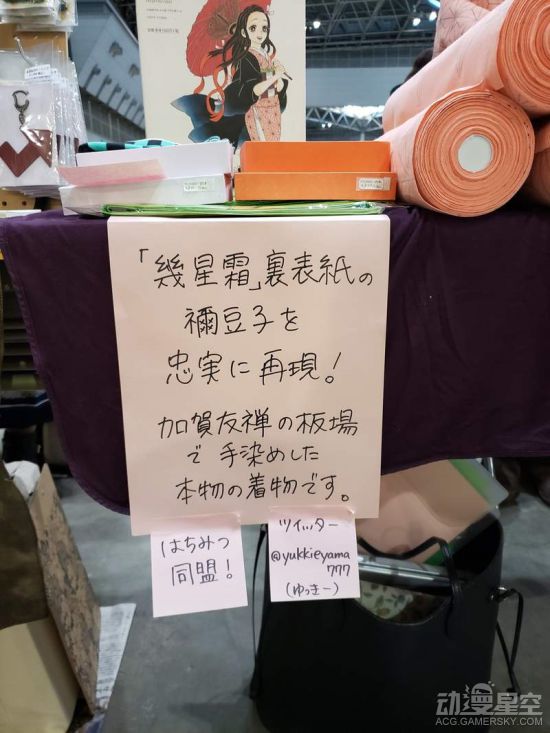 「幾星霜」裏表紙の
禰豆子を
忠実に再現!
加賀友禅の板場
で手染めした
本物の着物です。
はちみつ
同盟!
ツイッター
@yukkieyama
777
(ゆっきー)
动漫星空
ACG.GAMERSKY.COM